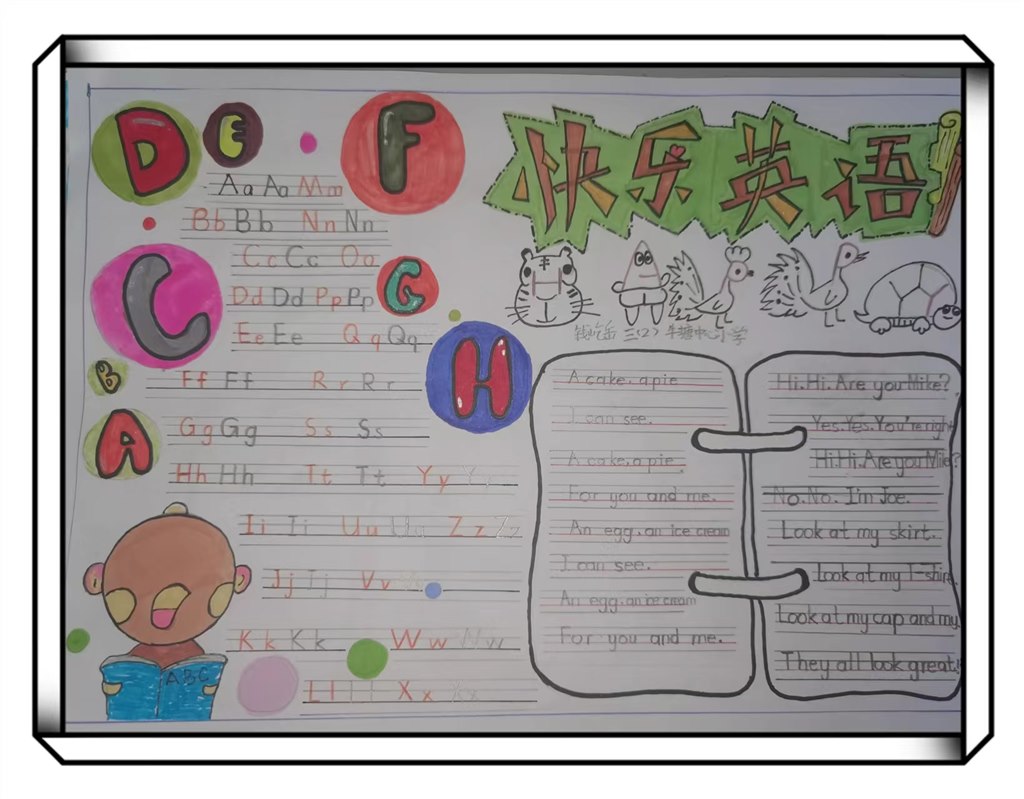 快乐英语
D
E
F
C
G
B
H
A
Aa Aa Mm
Bb Bb Nn Nn
Cc Cc Oo
Dd Dd Pp Pp
Ee Ee Qq Qq
Ff Ff Rr Rr
Gg Gg Ss Ss
Hh Hh Tt Tt Yy Yy
Ii Ii Uu Uu Zz Zz
Jj Jj Vv Vv
Kk Kk Ww Ww
Ll Ll Xx Xx
ABC
三(2) 牛塘中心小学
A cake, a pie
I can see.
A cake, a pie,
For you and me.
An egg, an ice cream
I can see.
An egg, an ice cream
For you and me.
Hi. Hi. Are you Mike?
Yes. Yes. You're right
Hi. Hi. Are you Mike?
No. No. I'm Joe.
Look at my skirt.
Look at my T-shirt.
Look at my cap and my
They all look great!